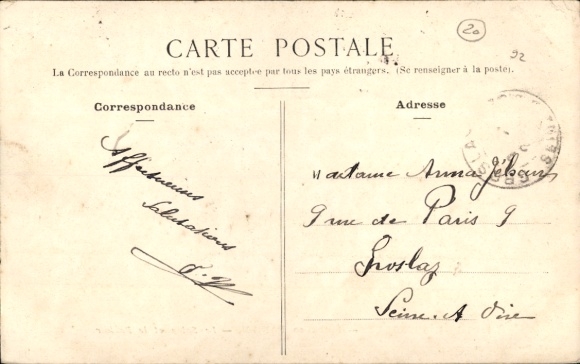 20
92
CARTE POSTALE
La Correspondance au recto n'est pas acceptée par tous les pays étrangers. (Se renseigner à la poste).
Correspondance
Adresse
Affectueuses
Salutations
Madame Anna
9 rue de Paris 9
Groslay
Seine & Oise